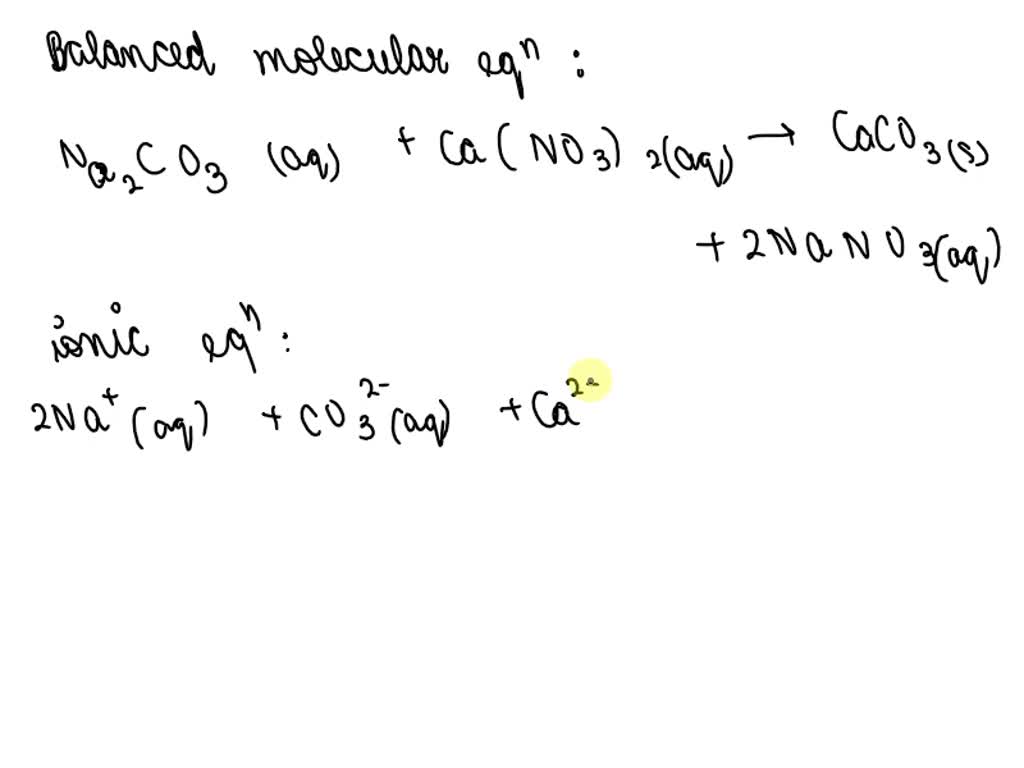 Balanced molecular eqⁿ :
Na₂CO₃ (aq) + Ca(NO₃)₂(aq) → CaCO₃(s)
+ 2NaNO₃(aq)
ionic eqⁿ :
2Na⁺(aq) + CO₃²⁻(aq) + Ca²